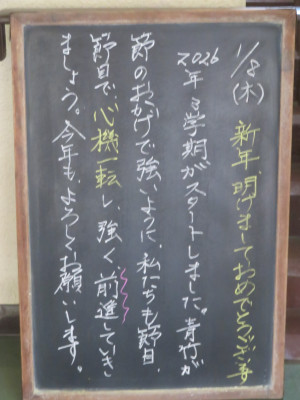 1/8(木) 新年、明けましておめでとうございます
2026年3学期がスタートしました。青竹が
節のおかげで強いように、私たちも節目、
節目で、心機一転し、強く前進していき
ましょう。今年も、よろしくお願いします。